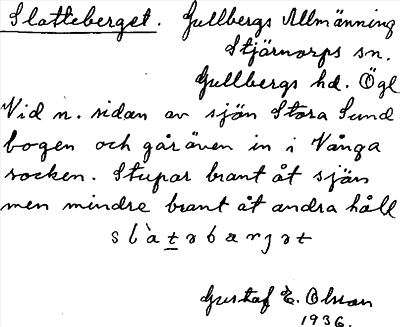 Slatteberget. Gullbergs Allmänning
Stjärnorps sn.
Gullbergs hd. Ögl
Vid n. sidan av sjön Stora Sund-
bogen och går även in i Vånga
socken. Stupar brant åt sjön
men mindre brant åt andra håll
Gustaf E. Olsson
1936.